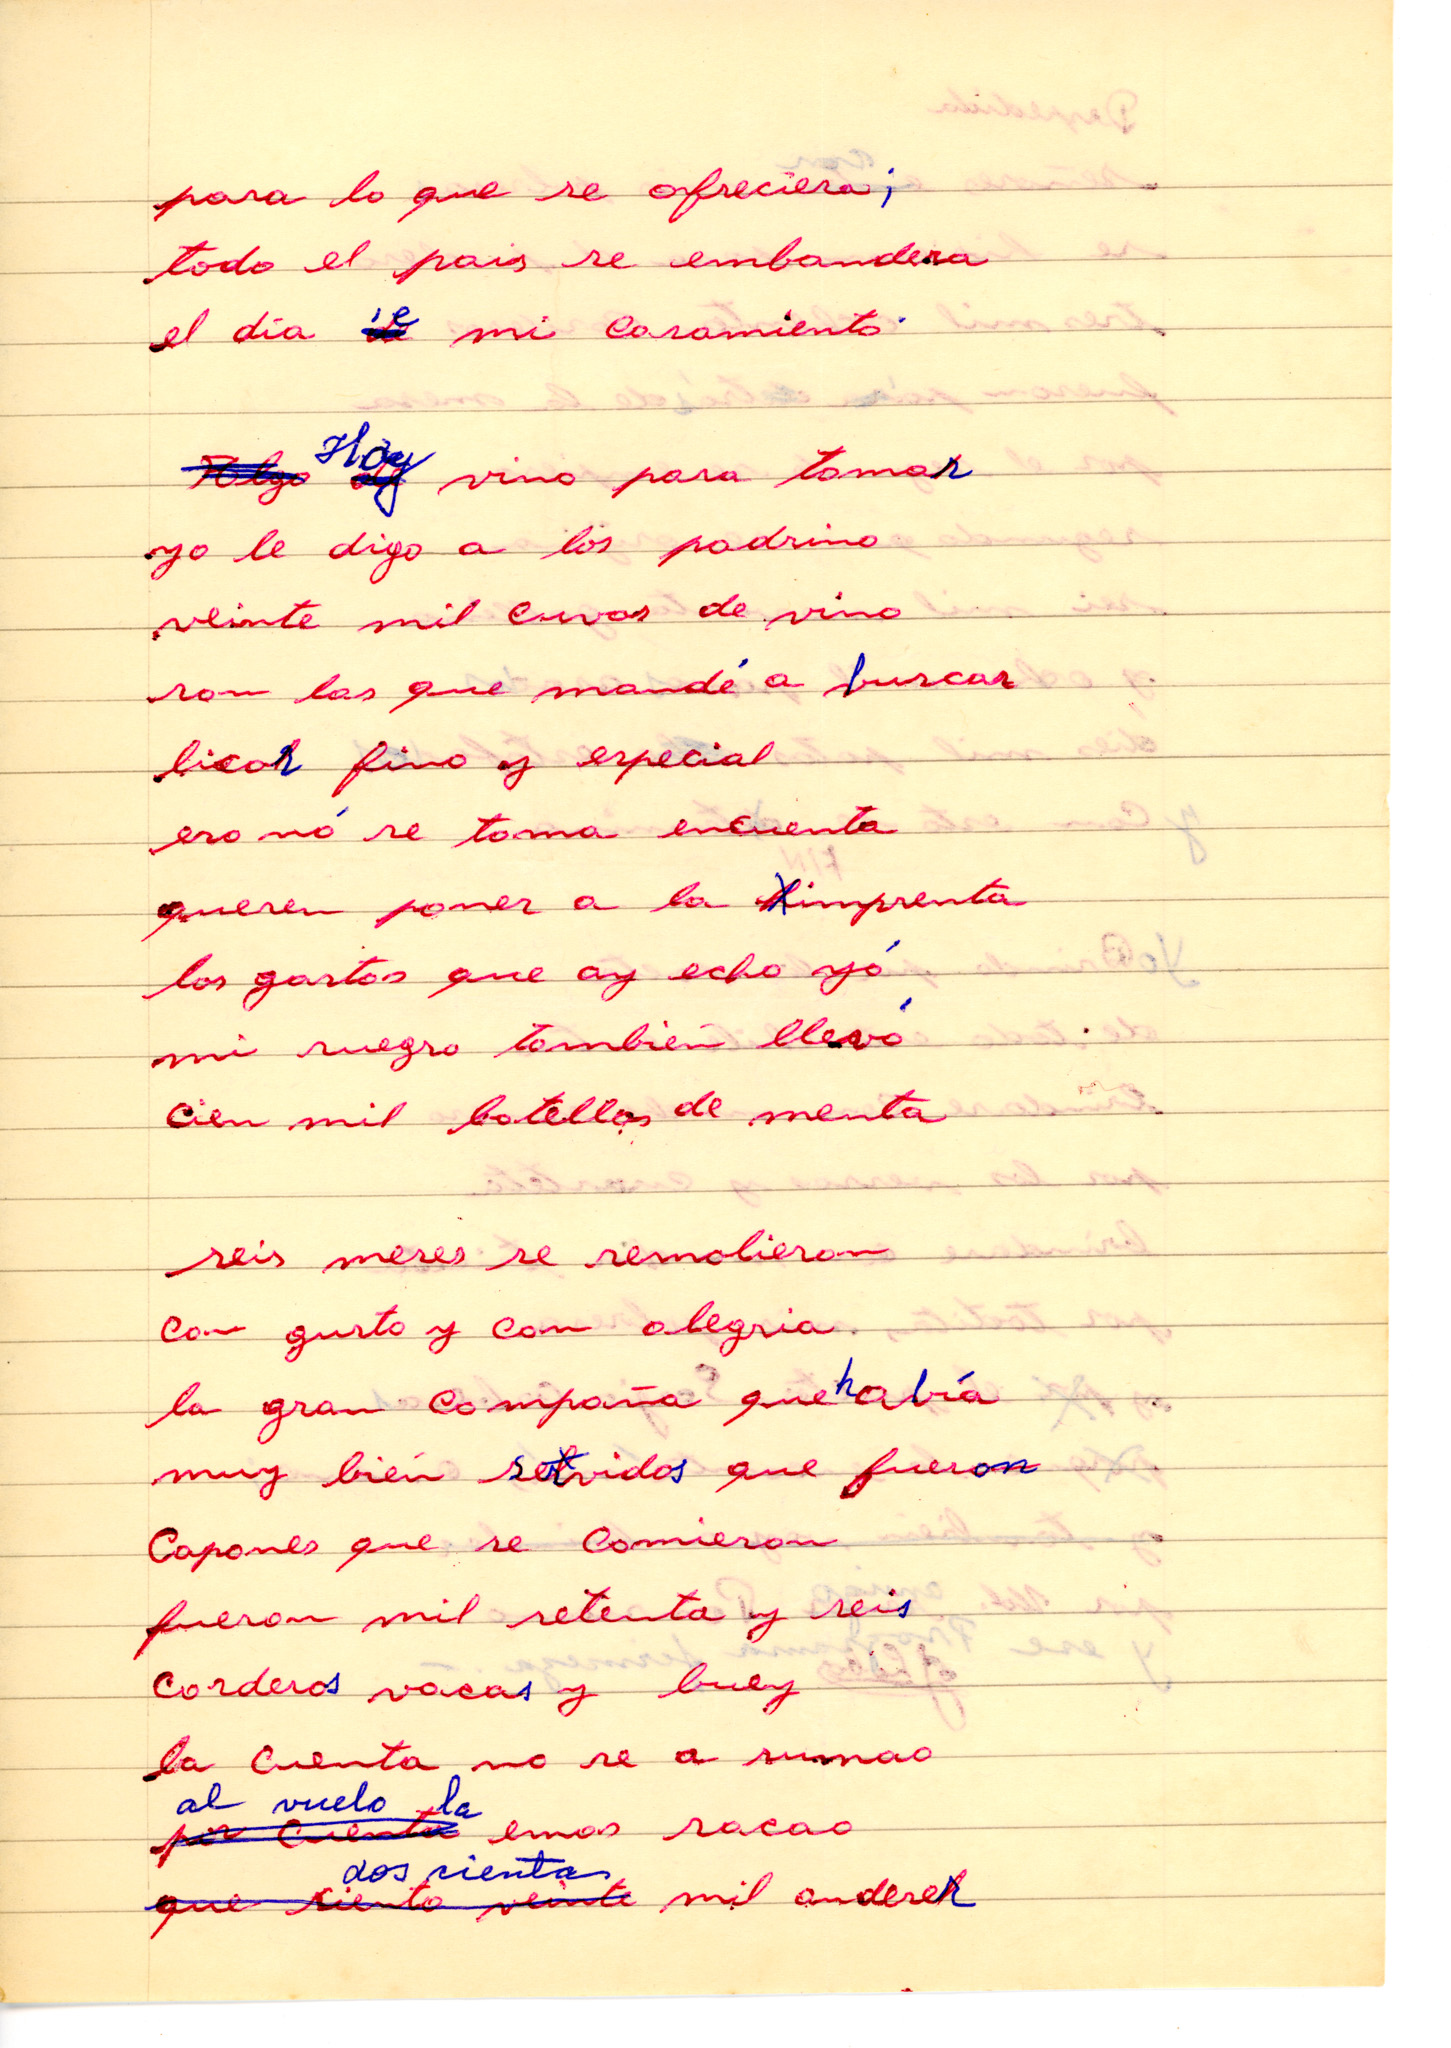 para lo que se ofreciera;
todo el pais se embandera
el dia de mi casamiento.
Hoy
Algo de vino para tomar
yo le digo a los padrino
veinte mil cuvas de vino
son las que mandé a buscar
licor fino y especial
eso nó se toma encuenta
queren poner a la imprenta
los gastos que ay echo yó
mi suegro tambien llevó
cien mil botellas de menta
seis meses se remolieron
con gusto y con alegria
la gran compaña que había
muy bien servidos que fueron
Capones que se comieron
fueron mil setenta y seis
corderos vacas y buey
la cuenta no se a sumao
al vuelo la
por cuenta emos sacao
dos sientas
que siento veinte mil anderes